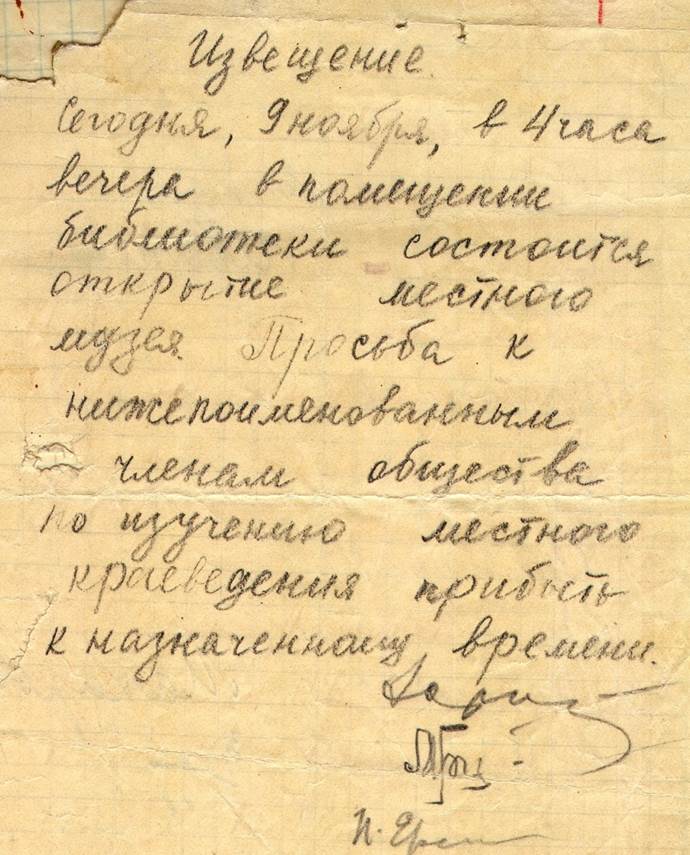 Извещение.
Сегодня, 9 ноября, в 4 часа
вечера в помещении
библиотеки состоится
открытие местного
музея. Просьба к
нижепоименованным
членам общества
по изучению местного
краеведения прибыть
к назначенному времени.